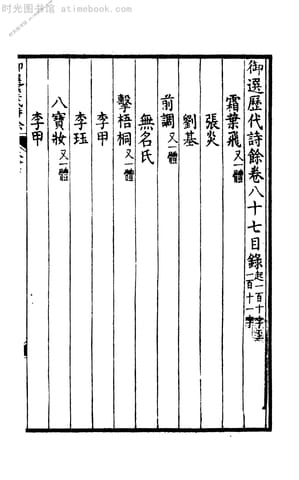 时光图书馆 www.mytimelib.com
御選歷代詩餘卷八十七目錄起一百十字至一百十一字
霜葉飛又一體
張炎
劉基
前調又一體
無名氏
擊梧桐又一體
李甲
李珏
八寶妝又一體
李甲